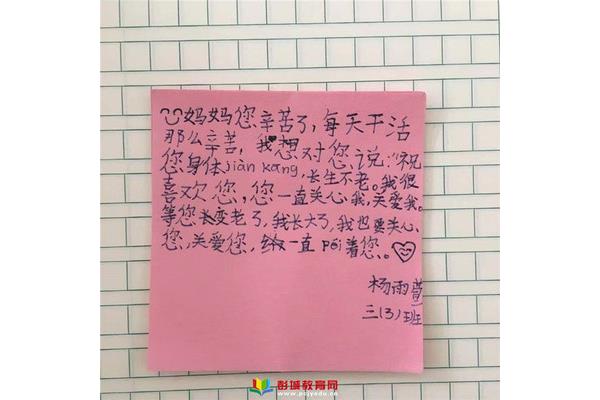 妈妈您辛苦了,每天干活
那么辛苦,我想对您说:“祝
您身体jiàn kāng,长生不老。我很
喜欢您,您一直关心我,关爱我。
等您变老了,我长大了,我也要关心
您,关爱您,一直péi着您。
杨雨萱
三(3)班
彭城教育网
www.pcjyedu.cn